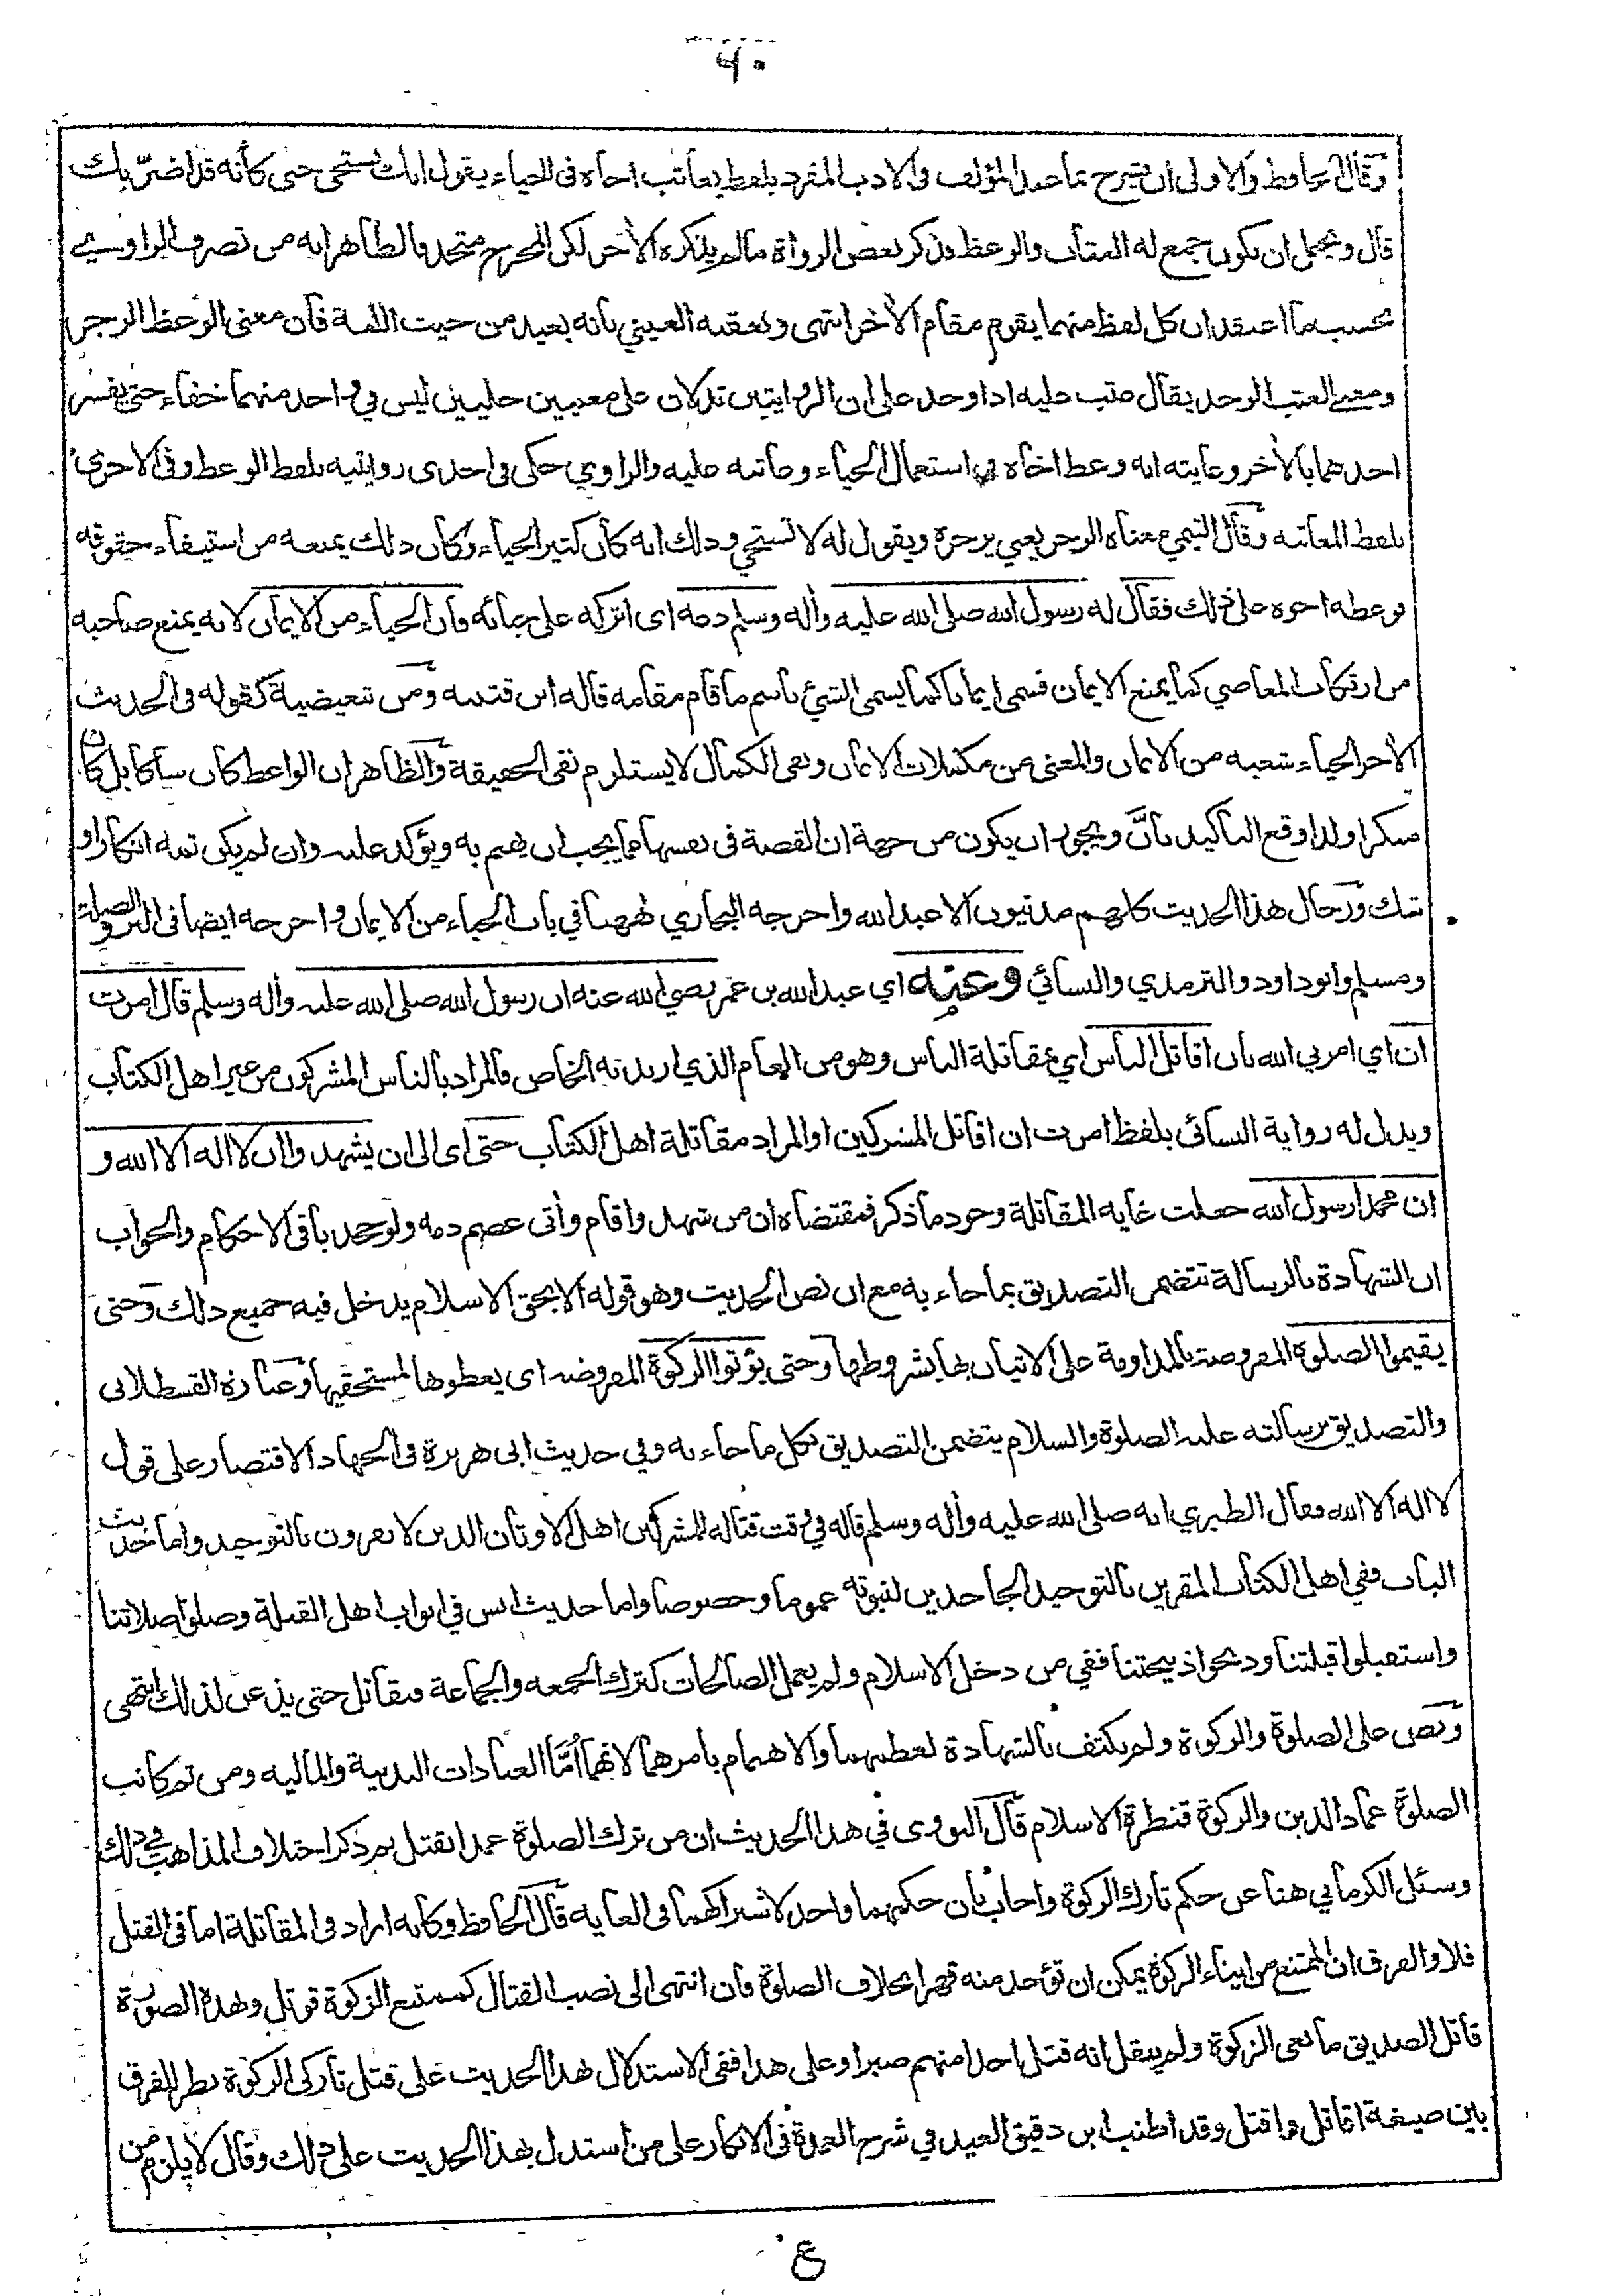 ٦٠
وقال الحافظ والاولى ان يشرح بما عند المؤلف فى الادب المفرد بلفظ يعاتب اخاه فى الحياء يقول انك لتستحي حتى كأنه قد اضرّ بك
قال ويحتمل ان يكون جمع له العتاب والوعظ فذكر بعض الرواة ما لم يذكره الأخر لكن المخرج متحد فالظاهر انه من تصرف الراوي
بحسب ما اعتقد ان كل لفظ منهما يقوم مقام الأخر انتهى وتعقبه العيني بانه بعيد من حيث اللغة فان معنى الوعظ الزجر
ومعنى العتب الوجد يقال عتب عليه اذا وجد على ان الروايتين تدلان على معنيين جليين ليس في واحد منهما خفاء حتى يفسر
احدهما بالأخر وغايته انه وعظ اخاه في استعمال الحياء وعاتبه عليه والراوي حكى فى احدى روايتيه بلفظ الوعظ وفى الاخرى
بلفظ المعاتبة وقال التيمي معناه الزجر يعني يزجره ويقول له لا تستحي وذلك انه كان كثير الحياء وكان ذلك يمنعه من استيفاء حقوقه
فوعظه اخوه على ذلك فقال له رسول الله صلى الله عليه وأله وسلم دعه اى اتركه على حيائه فان الحياء من الايمان لانه يمنع صاحبه
من ارتكاب المعاصي كما يمنع الايمان فسمى ايمانا كما يسمى الشئ باسم ما قام مقامه قاله ابن قتيبه ومن تبعيضية كقوله فى الحديث
الأخر الحياء شعبه من الايمان والمعنى من مكملات الايمان ونفى الكمال لا يستلزم نفى الحقيقة والظاهر ان الواعظ كان شاكا بل كان
منكرا ولذا وقع التأكيد بانّ ويجوز ان يكون من جهة ان القصة فى نفسها مما يجب ان يهتم به ويؤكد عليه وان لم يكن ثمه انكار او
شك ورجال هذا الحديث كلهم مدنيون الا عبد الله واخرجه البخاري ههنا في باب الحياء من الايمان واخرجه ايضا فى البر والصلة
ومسلم وابوداود والترمذي والنسائي وعنه اي عبد الله بن عمر رضي الله عنه ان رسول الله صلى الله عليه وأله وسلم قال امرت
ان اي امرني الله بان اقاتل الناس اي بمقاتلة الناس وهو من العام الذي اريد به الخاص فالمراد بالناس المشركون من غير اهل الكتاب
ويدل له رواية النسائى بلفظ امرت ان اقاتل المشركين او المراد مقاتلة اهل الكتاب حتى اى الى ان يشهدوا ان لا اله الا الله و
ان محمدا رسول الله جعلت غايه المقاتلة وجود ما ذكر فمقتضاه ان من شهد واقام وأتى عصم دمه ولو جحد باقى الاحكام والجواب
ان الشهادة بالرسالة تتضمن التصديق بما جاء به مع ان نص الحديث وهو قوله الا بحق الاسلام يدخل فيه جميع ذلك وحتى
يقيموا الصلوة المفروضة بالمداومة على الاتيان بها بشروطها وحتى يؤتوا الزكوة المفروضه اى يعطوها لمستحقيها وعبارة القسطلانى
والتصديق برسالته عليه الصلوة والسلام يتضمن التصديق بكل ما جاء به وفي حديث ابى هريرة فى الجهاد الاقتصار على قول
لا اله الا الله فقال الطبري انه صلى الله عليه وأله وسلم قاله في وقت قتاله للمشركين اهل الاوثان الذين لا يقرون بالتوحيد واما حديث
الباب ففي اهل الكتاب المقرين بالتوحيد الجاحدين لنبوته عموما وخصوصا واما حديث انس في ابواب اهل القبلة وصلوا صلاتنا
واستقبلوا قبلتنا وذبحوا ذبيحتنا ففي من دخل الاسلام ولم يعمل الصالحات كترك الجمعه والجماعة فيقاتل حتى يذعن لذلك انتهى
ونص على الصلوة والزكوة ولم يكتف بالشهادة لعظمهما والاهتمام بامرهما لانهما أُمَّا العبادات البدنية والماليه ومن ثم كانت
الصلوة عماد الدين والزكوة قنطرة الاسلام قال النووى في هذا الحديث ان من ترك الصلوة عمدا يقتل ثم ذكر اختلاف المذاهب في ذلك
وسئل الكرماني هنا عن حكم تارك الزكوة واجاب بان حكمهما واحد لاشتراكهما فى الغايه قال الحافظ وكانه اراد فى المقاتلة اما فى القتل
فلا والفرق ان الممتنع من ايتاء الزكوة يمكن ان تؤخذ منه قهرا بخلاف الصلوة فان انتهى الى نصب القتال كمن منع الزكوة قوتل وبهذه الصورة
قاتل الصديق مانعى الزكوة ولم ينقل انه قتل احدا منهم صبرا وعلى هذا ففى الاستدلال بهذا الحديث على قتل تاركى الزكوة نظر للفرق
باين صيغة اقاتل واقتل وقد اطنب ابن دقيق العيد في شرح العمدة فى الانكار على من استدل بهذا الحديث على ذلك وقال لا يلزم من
ع